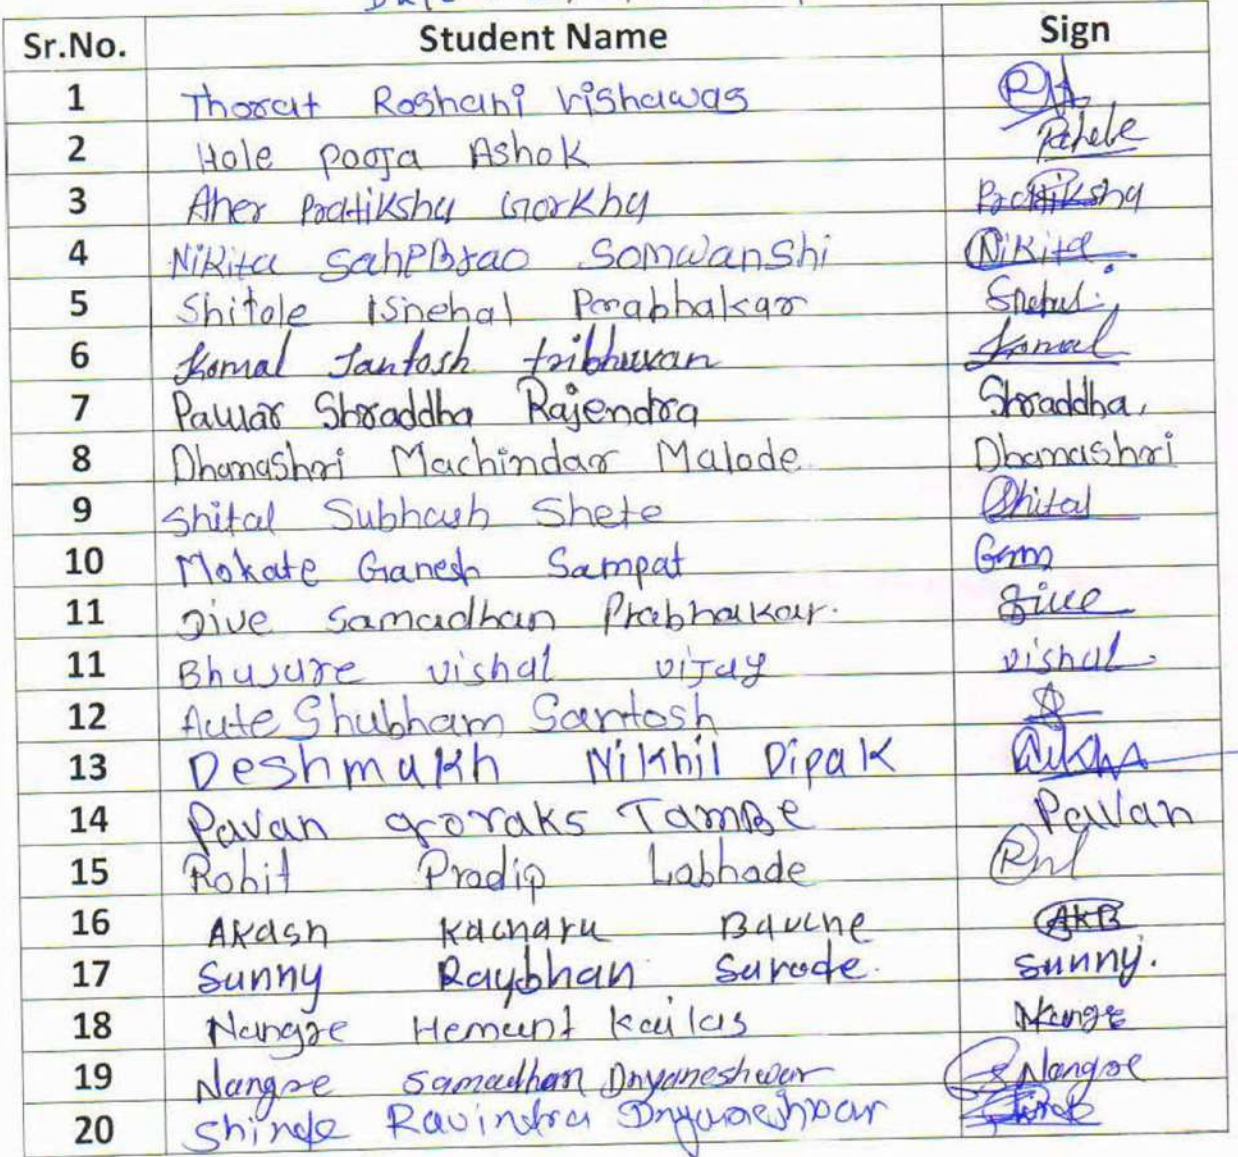 Sr.No. Student Name Sign
1 Thorat Roshani Vishawas
2 Hole pooja Ashok
3 Aher Pratiksha Gorkha Pratiksha
4 Nikita SahPBrao Somwanshi Nikita
5 Shitole Snehal Prabhakar Snehal
6 Komal Santosh tribhuvan Komal
7 Pawar Shraddha Rajendra Shraddha,
8 Dhanashri Machindar Malode Dhanashri
9 Shital Subhash Shete Shital
10 Mokate Ganesh Sampat
11 Jive Samadhan Prabhakar. Jive
11 Bhusare vishal vijay vishal
12 Aute Shubham Santosh
13 Deshmukh Nikhil Dipak
14 Pavan goraks TamBe Pavan
15 Rohit Pradip Labhade
16 Akash Kacharu Bauche AKB
17 Sunny Raybhan Sarode. Sunny.
18 Nangre Hemant Kailas Nangre
19 Nangre Samadhan Dnyaneshwar Nangre
20 Shinde Ravindra Dnyaneshwar